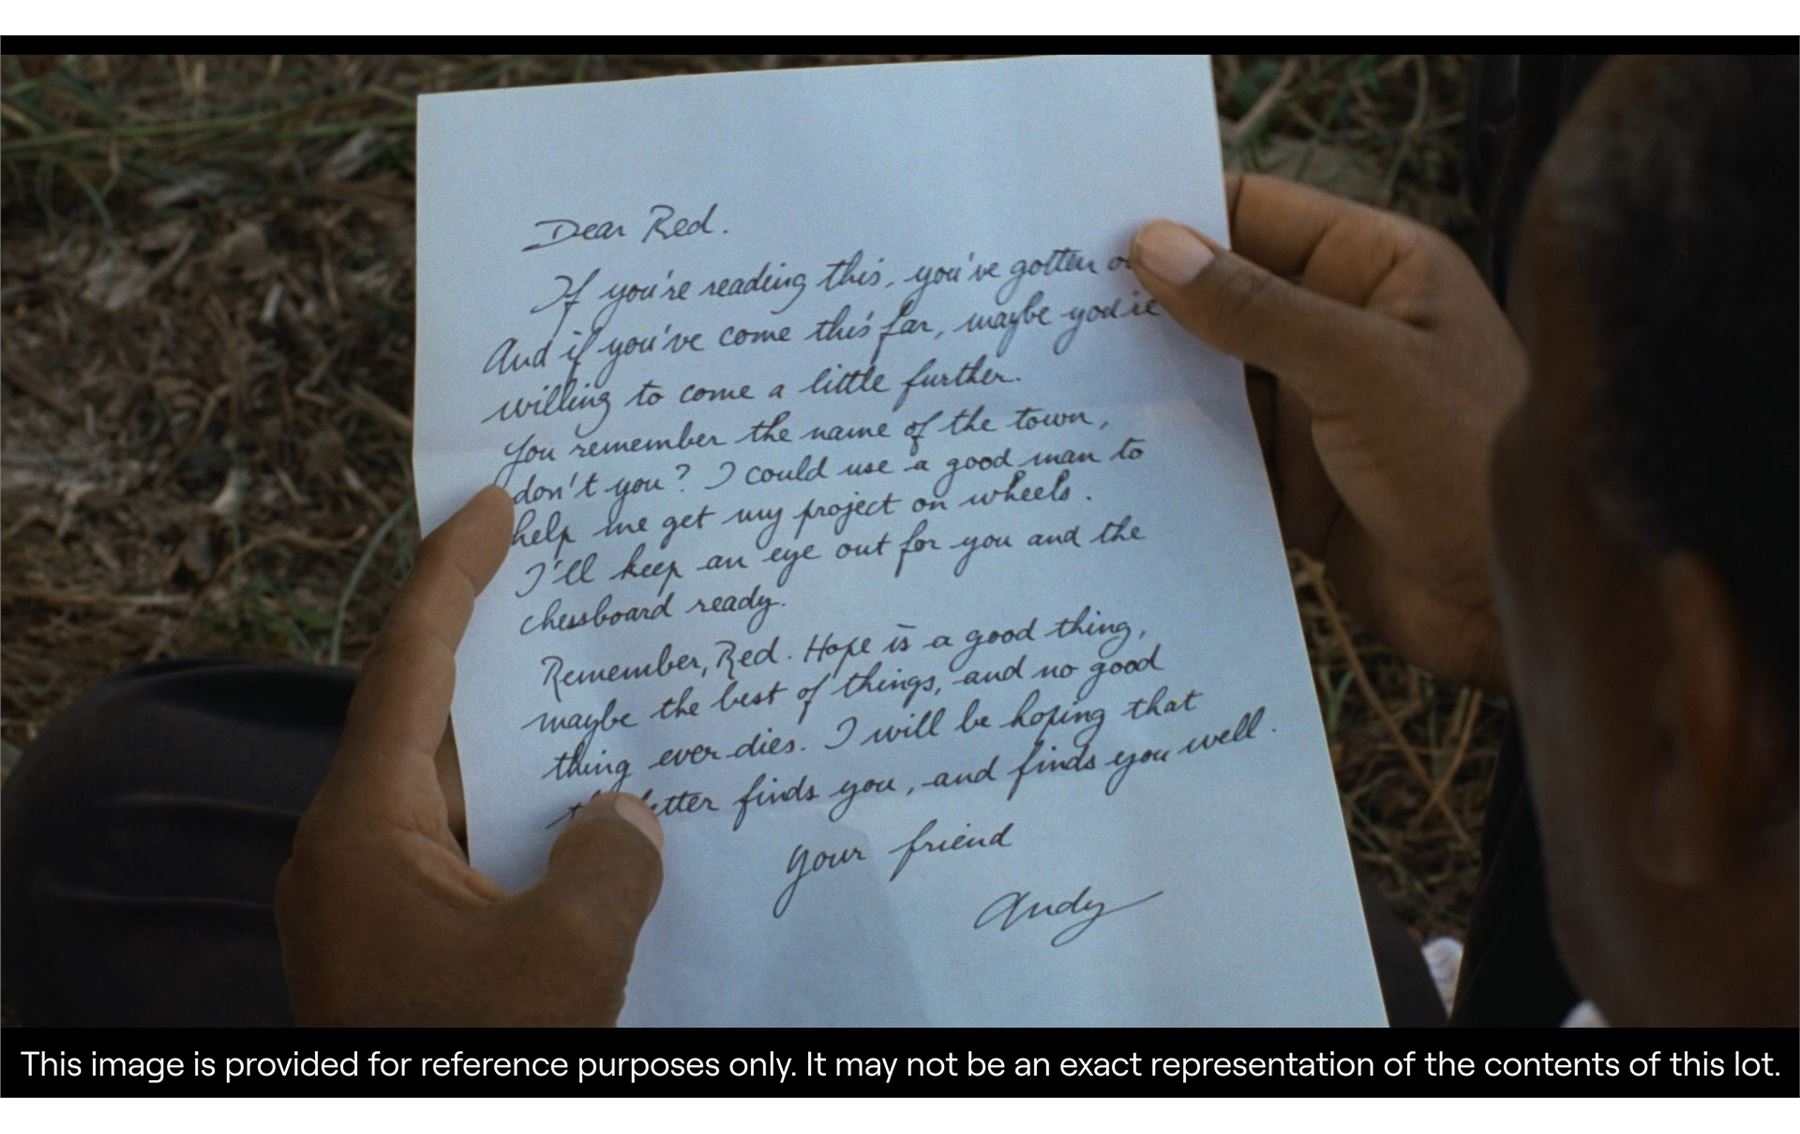 Dear Red.
If you're reading this, you've gotten
And if you've come this far, maybe you're
willing to come a little further.
You remember the name of the town,
don't you? I could use a good man to
help me get my project on wheels.
I'll keep an eye out for you and the
chessboard ready.
Remember, Red. Hope is a good thing,
maybe the best of things, and no good
thing ever dies. I will be hoping that
letter finds you, and finds you well.
Your friend
Andy
This image is provided for reference purposes only. It may not be an exact representation of the contents of this lot.